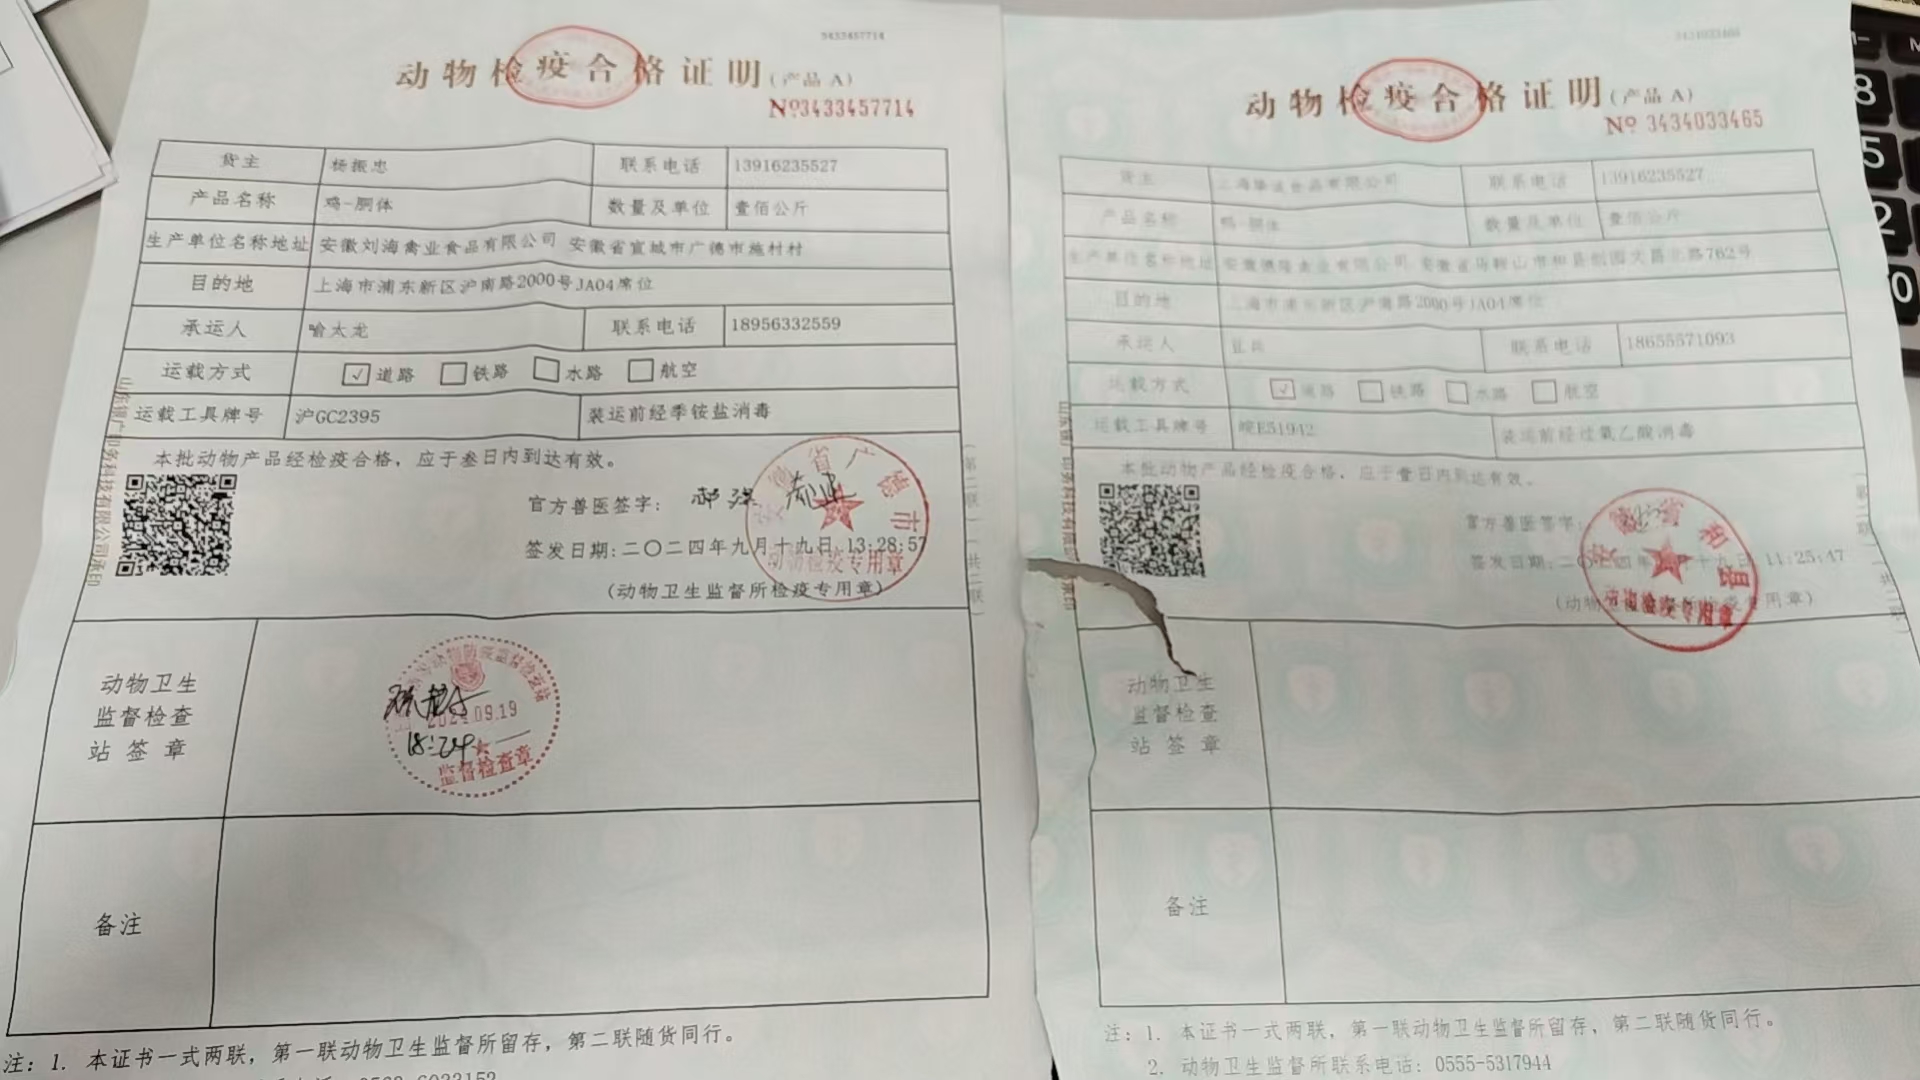 3433457714
动物检疫合格证明(产品 A)
№3433457714
货主 杨振忠 联系电话 13916235527
产品名称 鸡-胴体 数量及单位 壹佰公斤
生产单位名称地址 安徽刘海禽业食品有限公司 安徽省宣城市广德市施村村
目的地 上海市浦东新区沪南路2000号JA04席位
承运人 喻太龙 联系电话 18956332559
运载方式 ✓ 道路 铁路 水路 航空
运载工具牌号 沪GC2395 装运前经季铵盐消毒
本批动物产品经检疫合格，应于叁日内到达有效。
官方兽医签字：
签发日期:二〇二四年九月十九日 13:28:57
动物检疫专用章
(动物卫生监督所检疫专用章)
动物卫生
监督检查
站 签 章
2024.09.19
18:24
监督检查章
备注
注：1. 本证书一式两联，第一联动物卫生监督所留存，第二联随货同行。
动物检疫合格证明(产品 A)
№ 3434033465
货主 食品有限公司 联系电话 13916235527
产品名称 鸡-胴体 数量及单位 壹佰公斤
生产单位名称地址 禽业有限公司 安徽省马鞍山市和县 762号
目的地 上海市浦东新区沪南路2000号JA04席位
承运人 联系电话 18655571093
运载方式 ✓ 道路 铁路 水路 航空
运载工具牌号 皖E51942 装运前经过氧乙酸消毒
本批动物产品经检疫合格，应于壹日内到达有效。
官方兽医签字：
签发日期:二〇二四年 十九日 11:25:47
(动物卫生监督所检疫专用章)
动物检疫专用章
动物卫生
监督检查
站 签 章
备注
注：1. 本证书一式两联，第一联动物卫生监督所留存，第二联随货同行。
2. 动物卫生监督所联系电话：0555-5317944